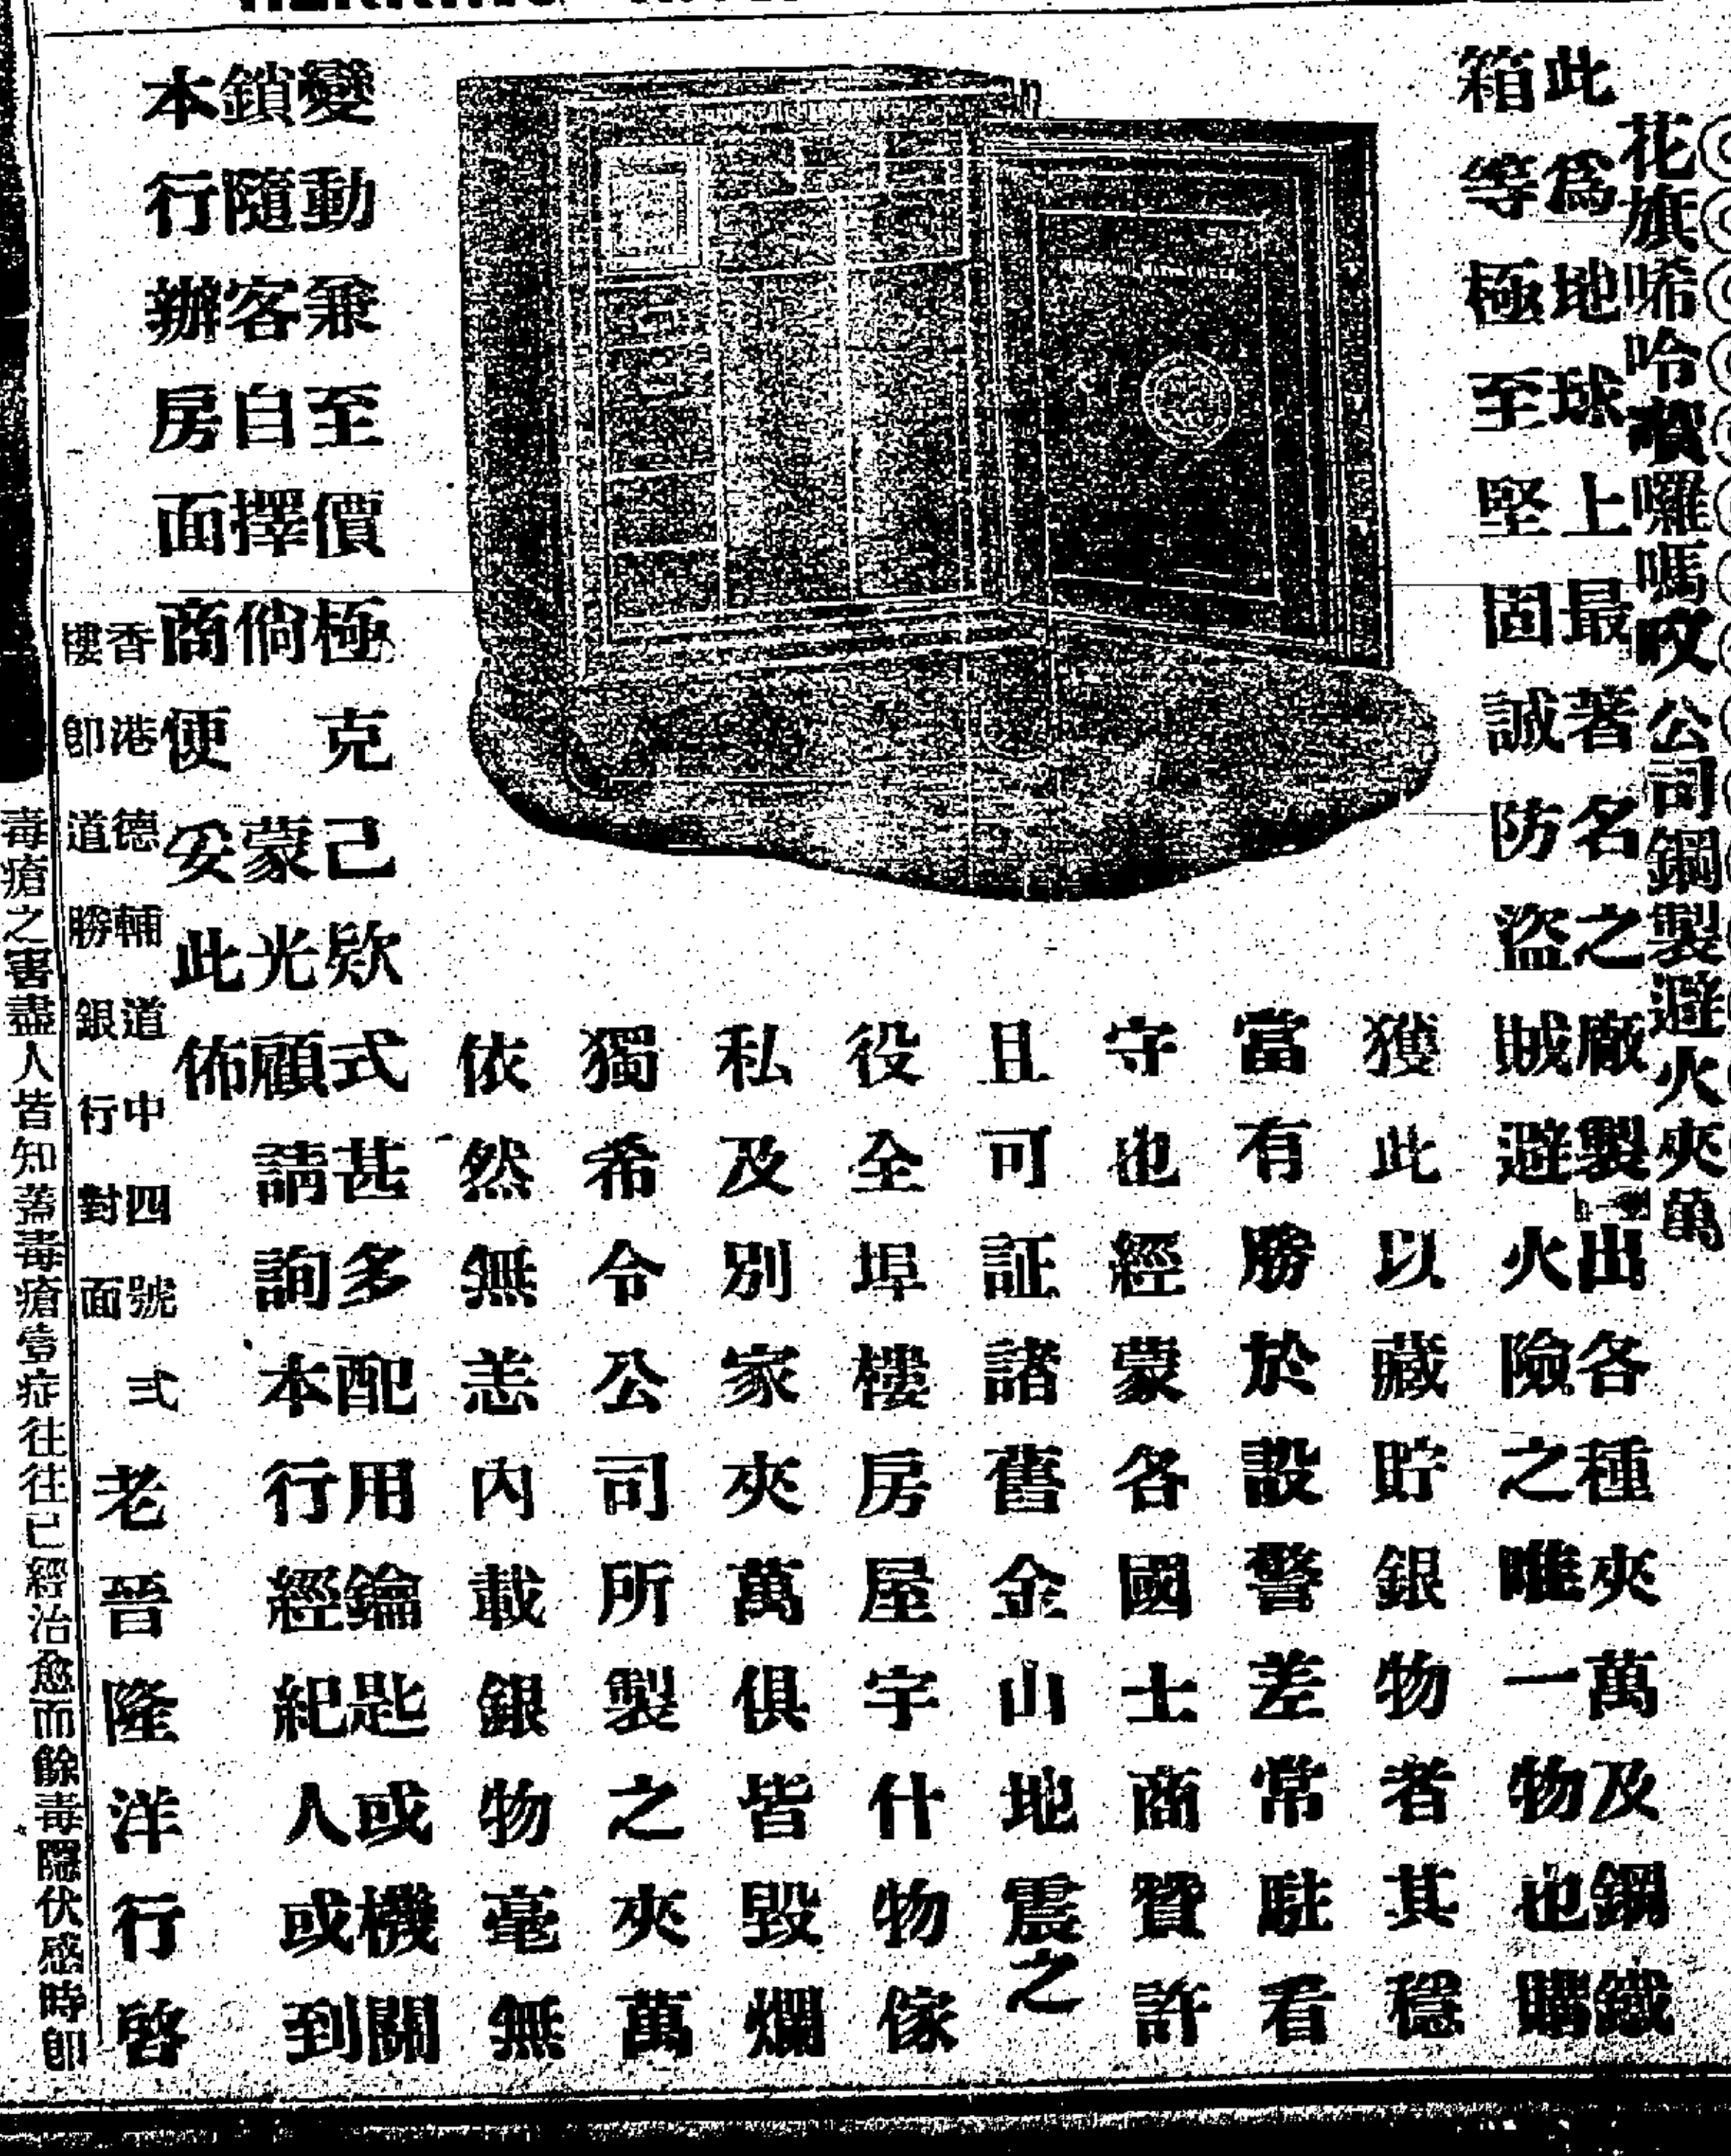 花旗唏哈囉嗎公司鋼製避火夾萬
此爲地球上最著名之廠製出各種夾萬及鋼鐵
箱等極至堅固誠防盜賊避火險之唯一物也購
獲此以藏貯銀物者其穩
當有勝於設警差常駐看
守也經蒙各國士商贊許
且可証諸舊金山地震之
役全埠樓房屋宇什物傢
私及別家夾萬俱皆毀爛
獨希令公司所製之夾萬
依然無恙內載銀物毫無
變動兼至價極克己欵式甚多配用鑰匙或機關
鎖隨客自擇倘蒙光顧請詢本行經紀人或到
本行辦房面商便妥此佈
香港德輔道中四號弍
樓卽道勝銀行對面
老晉隆洋行啓
毒瘡之害盡人皆知蓋毒瘡壹症往往已經治愈而餘毒隱伏感時卽